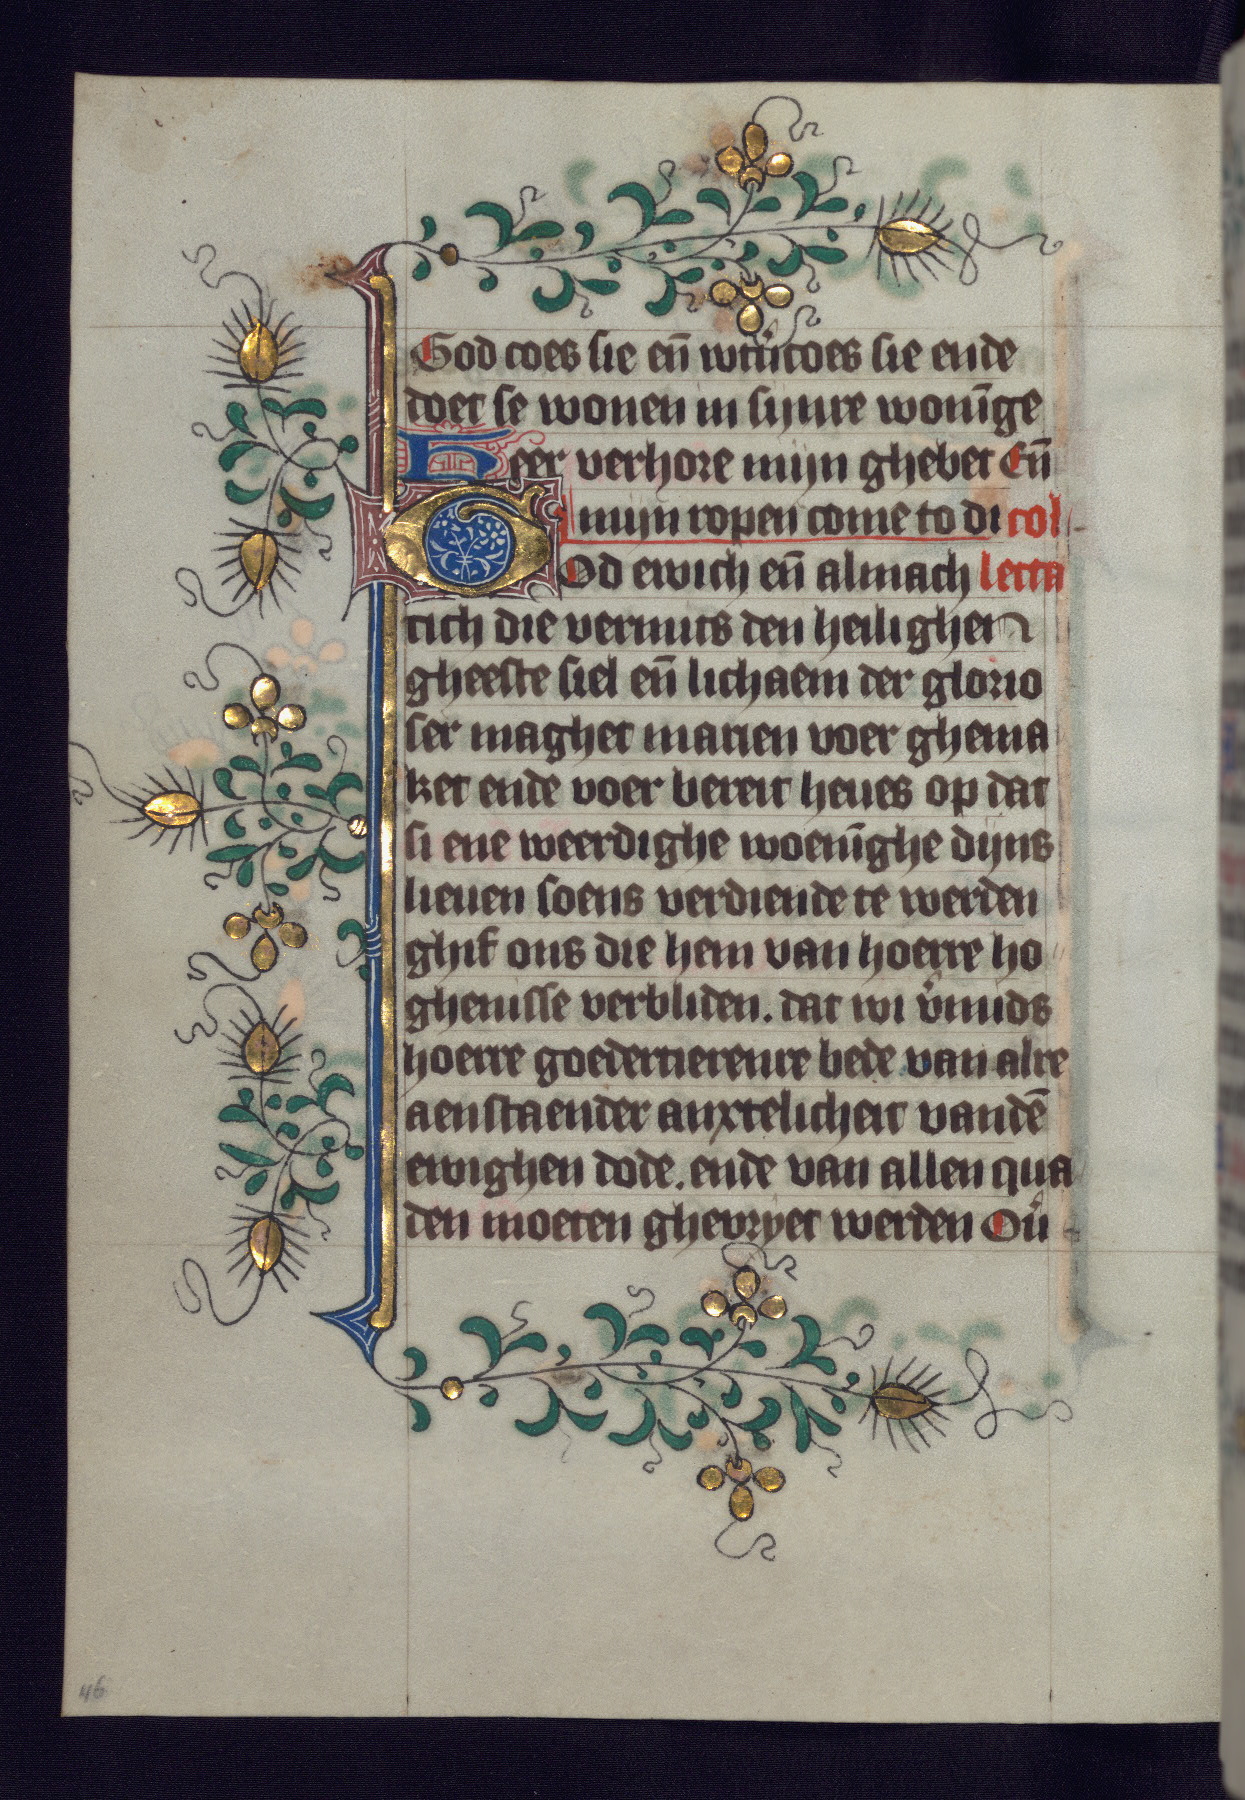 God coes sie eñ wtu̇coes sie ende
doet se wonen in sijnre wonīge
Heer verhore mijn ghebet Eñ
mijn ropen come to di col
God ewich eñ almach lecta
tich die vermits den heilighen
gheeste siel eñ lichaem der glorio
ser maghet marien voer ghema
ket ende voer bereit heues op dat
si ene weerdighe woenīghe dijns
lieuen soens verdiende te werden
ghif ons die hem van hoerre ho
ghenisse verbliden. dat wi v̇mids
hoerre goedertierenre bede van alre
aenstaender anxtelicheit vandē
ewighen dode. ende van allen qua
den moeten ghevryet werden Ou̇
46